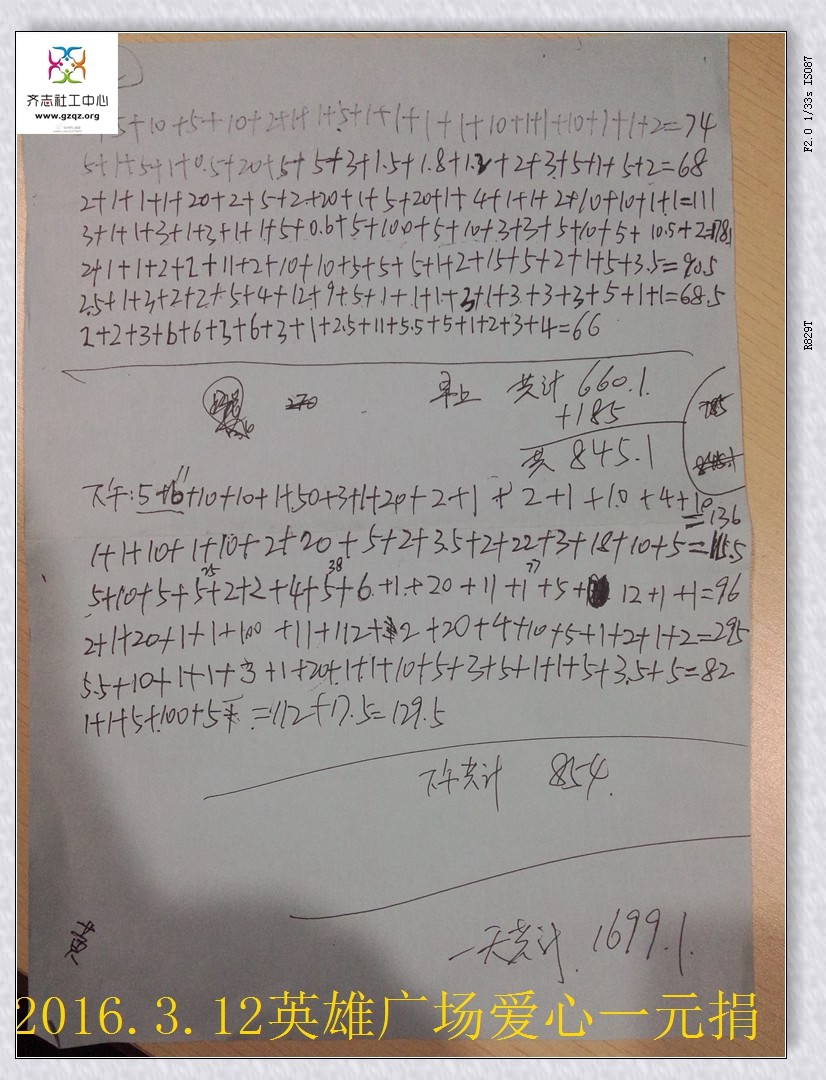 齐志社工中心
www.gzqz.org
F2.0 1/33s ISO87
R829T
5+10+5+10+2+1+1+5+1+1+1+1+10+1+1+10+1+1+2=74
5+1+5+1+0.5+20+5+5+3+1.5+1.8+1.2+2+3+5+1+5+2=68
2+1+1+1+20+2+5+2+20+1+5+20+1+4+1+1+2+10+10+1+1=111
3+1+1+3+1+3+1+1+5+0.6+5+100+5+10+3+3+5+10+5+10.5+2=178.1
2+1+1+2+2+11+2+10+10+5+5+5+1+2+15+5+2+1+5+3.5=90.5
2.5+1+3+2+2+5+4+12+9+5+1+1+1+3+1+3+3+3+5+1+1=68.5
2+2+3+6+6+3+6+3+1+2.5+11+5.5+5+1+2+3+4=66
早上 共计 660.1.
+185
共 845.1
下午:5+6+10+10+1+50+3+1+20+2+1+2+1+10+4+10
11
=136
1+1+10+1+10+2+20+5+2+3.5+2+22+3+18+10+5=115.5
5+10+5+5+2+2+4+5+6+1+20+11+1+5+12+1+1=96
25 38 77
2+1+20+1+1+100+11+112+2+20+4+10+5+1+2+1+2=295
5.5+10+1+1+3+1+20+1+1+10+5+3+5+1+1+5+3.5+5=82
1+1+5+100+5+=112+17.5=129.5
下午共计 854.
一天共计 1699.1.
2016.3.12英雄广场爱心一元捐